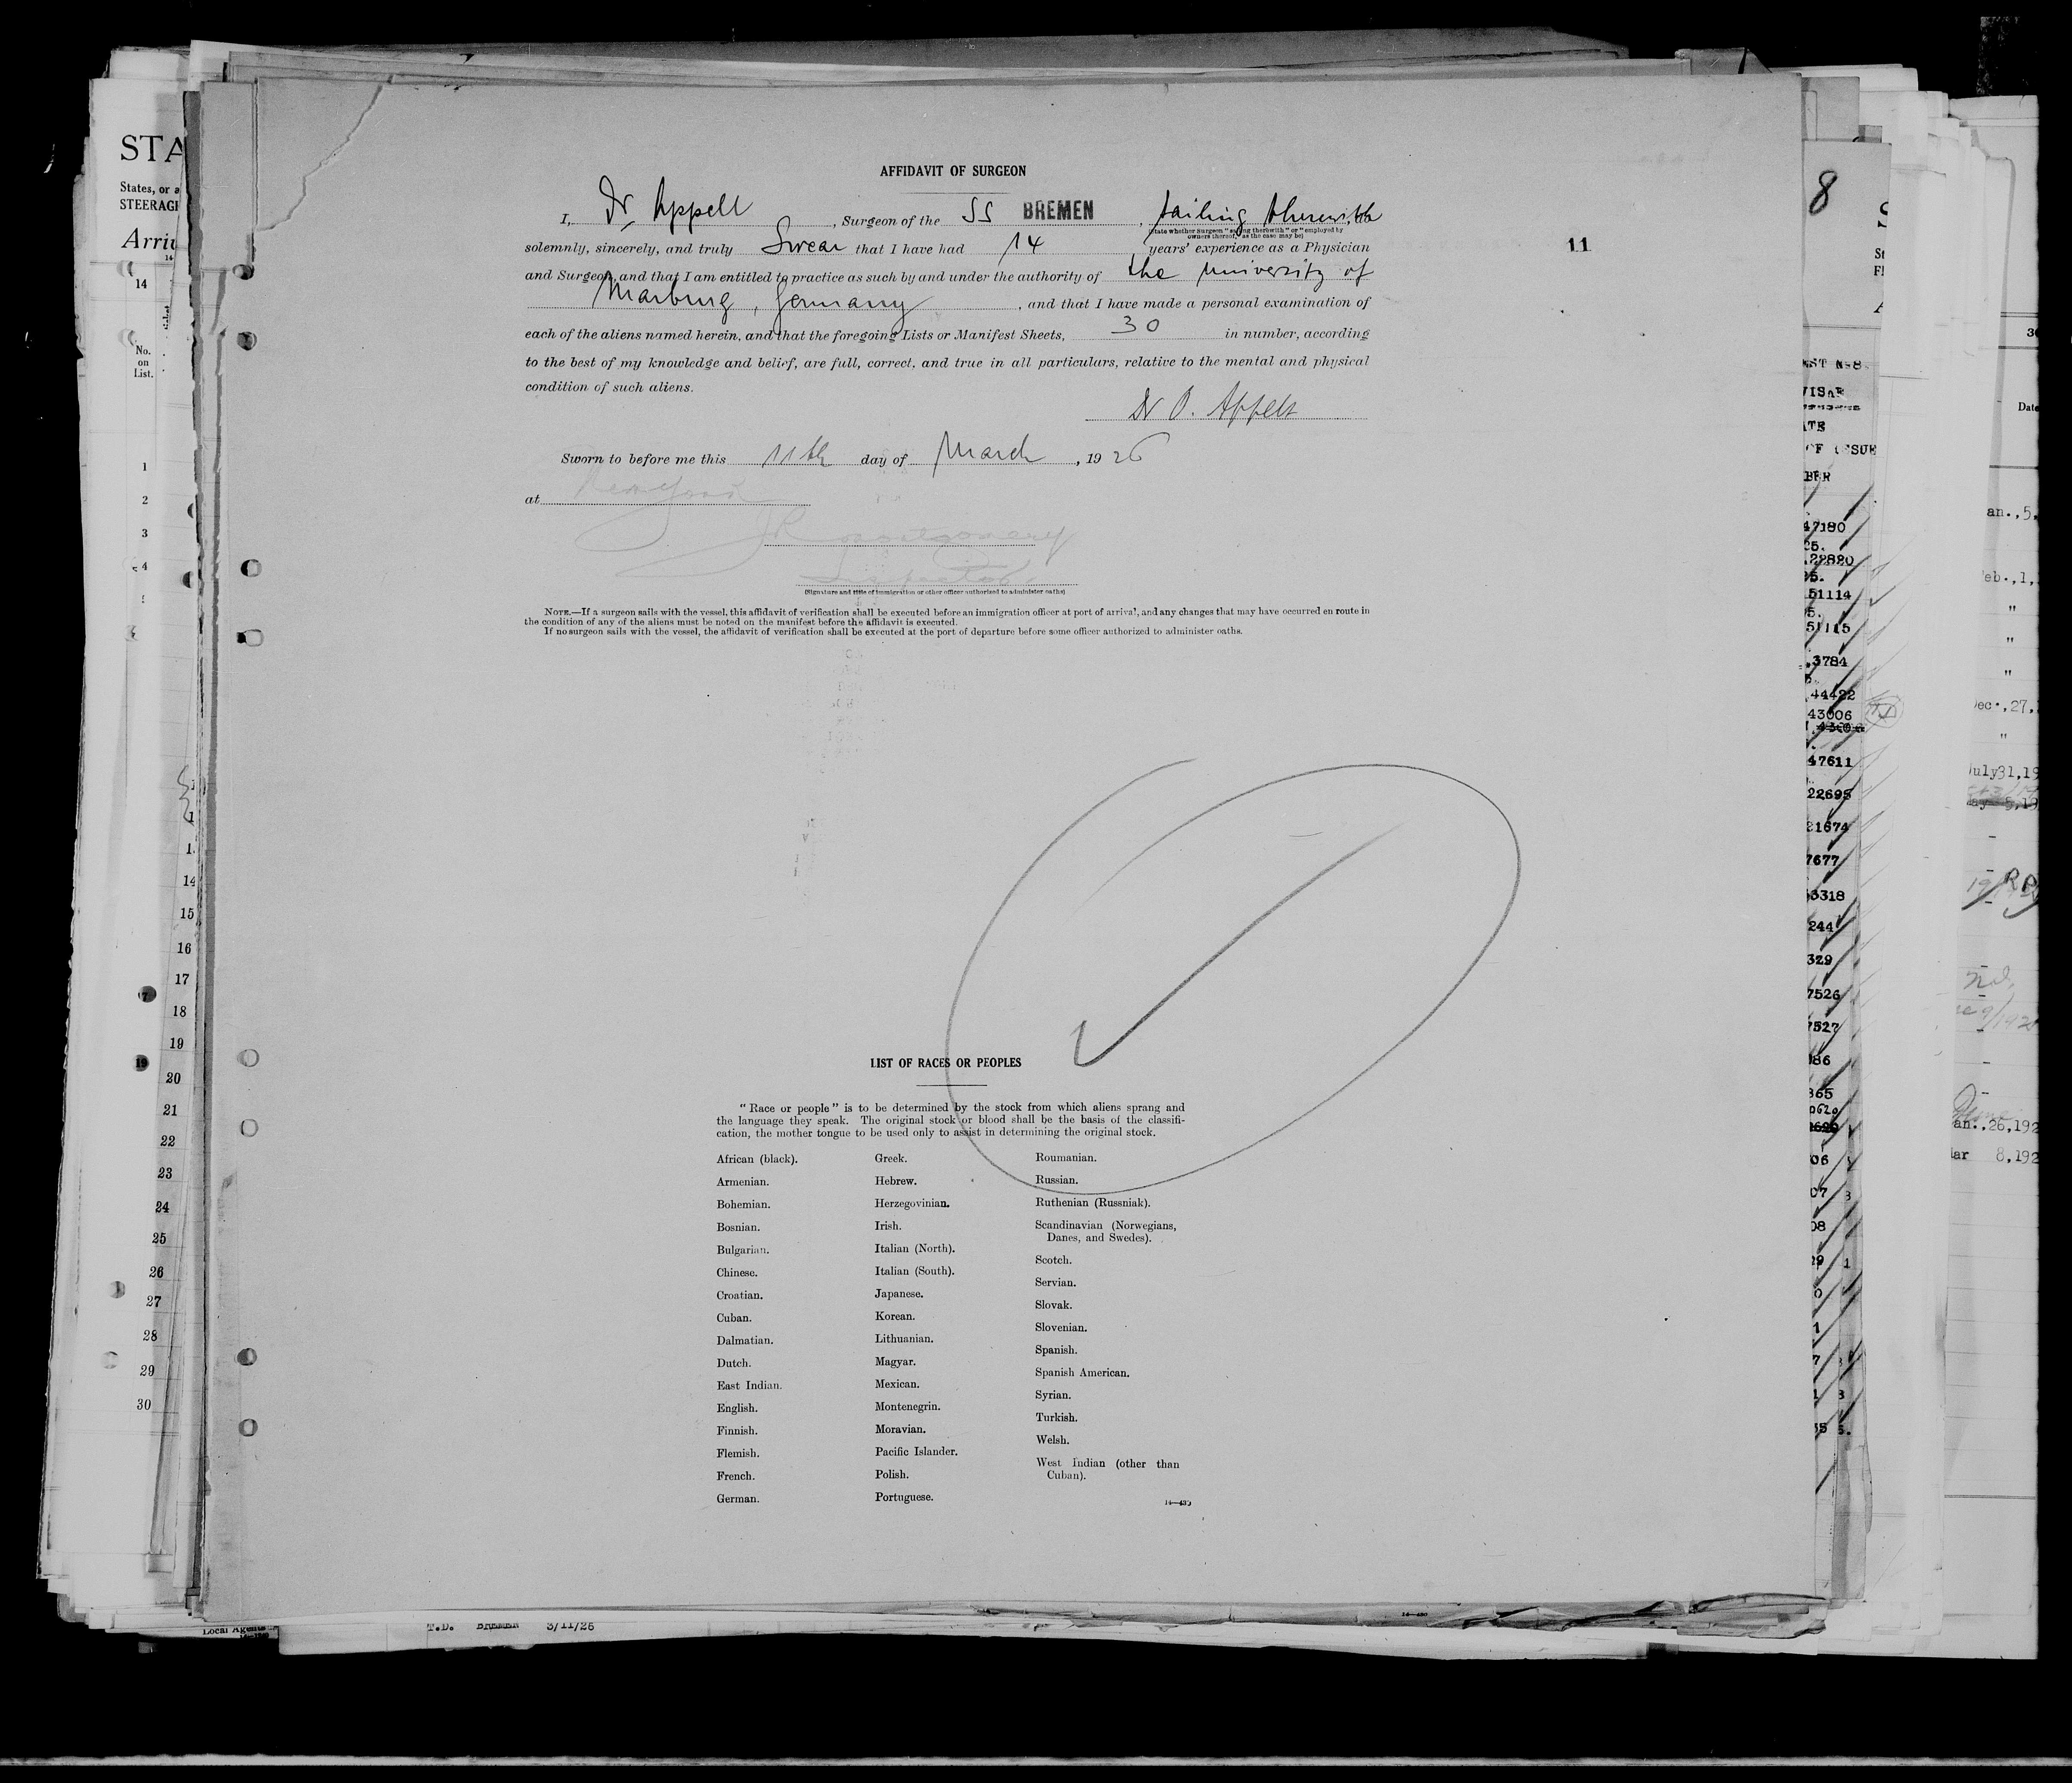 AFFIDAVIT OF SURGEON
I, Dr. Appell, Surgeon of the SS BREMEN, sailing therewith, do
(State whether Surgeon "sailing therewith" or "employed by owners thereof," as the case may be)
solemnly, sincerely, and truly Swear that I have had 14 years' experience as a Physician
and Surgeon, and that I am entitled to practice as such by and under the authority of the university of
Marburg, Germany, and that I have made a personal examination of
each of the aliens named herein, and that the foregoing Lists or Manifest Sheets, 30 in number, according
to the best of my knowledge and belief, are full, correct, and true in all particulars, relative to the mental and physical
condition of such aliens.
Dr O. Appell
Sworn to before me this 11th day of March, 1926
at New York
J R Montgomery
Inspector
(Signature and title of immigration or other officer authorized to administer oaths)
NOTE.—If a surgeon sails with the vessel, this affidavit of verification shall be executed before an immigration officer at port of arrival, and any changes that may have occurred en route in
the condition of any of the aliens must be noted on the manifest before the affidavit is executed.
If no surgeon sails with the vessel, the affidavit of verification shall be executed at the port of departure before some officer authorized to administer oaths.
11
LIST OF RACES OR PEOPLES
"Race or people" is to be determined by the stock from which aliens sprang and
the language they speak. The original stock or blood shall be the basis of the classifi-
cation, the mother tongue to be used only to assist in determining the original stock.
African (black).
Armenian.
Bohemian.
Bosnian.
Bulgarian.
Chinese.
Croatian.
Cuban.
Dalmatian.
Dutch.
East Indian.
English.
Finnish.
Flemish.
French.
German.
Greek.
Hebrew.
Herzegovinian.
Irish.
Italian (North).
Italian (South).
Japanese.
Korean.
Lithuanian.
Magyar.
Mexican.
Montenegrin.
Moravian.
Pacific Islander.
Polish.
Portuguese.
Roumanian.
Russian.
Ruthenian (Russniak).
Scandinavian (Norwegians,
Danes, and Swedes).
Scotch.
Servian.
Slovak.
Slovenian.
Spanish.
Spanish American.
Syrian.
Turkish.
Welsh.
West Indian (other than
Cuban).
STA
States, or a
STEERAG
Arri
14
No.
on
List.
1
2
3
4
14
15
16
17
18
19
20
21
22
23
24
25
26
27
28
29
30
8
47180
22820
51114
51115
3784
44422
43006
47611
22695
21674
7677
3318
244
329
7526
7527
Local Agents
T.D. BREMEN 3/11/26